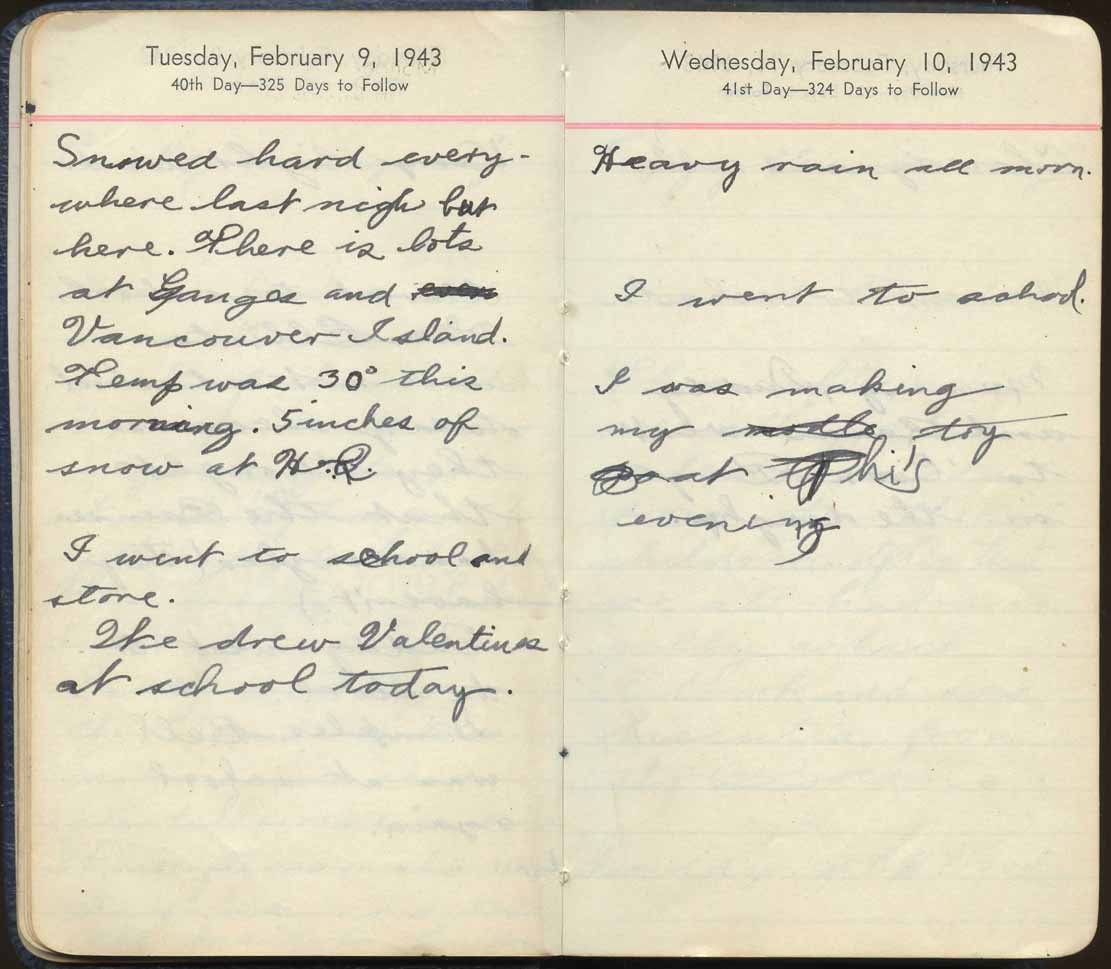 Tuesday, February 9, 1943
40th Day—325 Days to Follow
Snowed hard every-
where last nigh but
here. There is lots
at Ganges and even
Vancouver Island.
Temp was 30° this
morning. 5 inches of
snow at H.Q.
I went to school and
store.
We drew Valentines
at school today.
Wednesday, February 10, 1943
41st Day—324 Days to Follow
Heavy rain all morn.
I went to school.
I was making
my modle toy
at This
evening